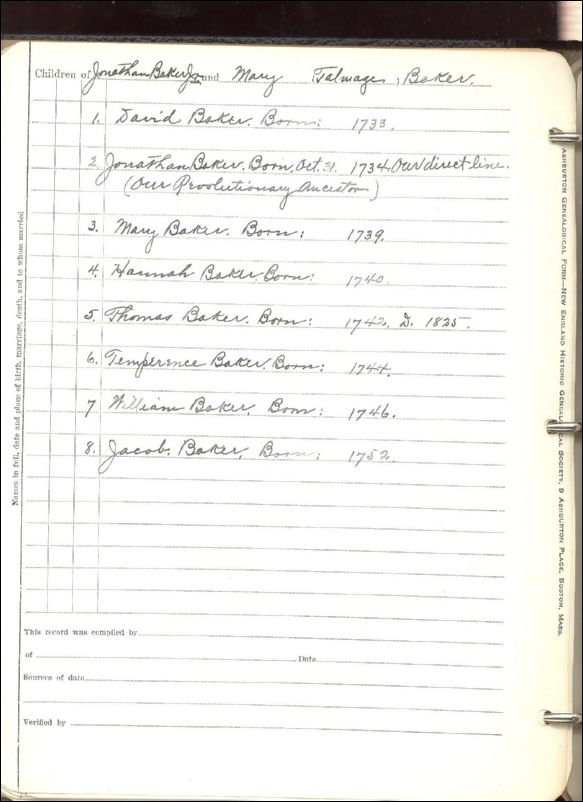 Children of Jonathan Baker Jr. and Mary (Talmage) Baker.
1. David Baker. Born: 1733.
2 Jonathan Baker. Born, Oct. 31. 1734. Our direct line.
(Our Revolutionary Ancestor)
3. Mary Baker. Born: 1739.
4. Hannah Baker. Born: 1740.
5. Thomas Baker. Born: 1742. D. 1825.
6. Temperence Baker. Born: 1744.
7 William Baker. Born: 1746.
8. Jacob. Baker. Born: 1752.
This record was compiled by
of Date
Sources of data
Verified by
Names in full, date and place of birth, marriage, death, and to whom married
Ashburton Genealogical Form—New England Historic Genealogical Society, 9 Ashburton Place, Boston, Mass.